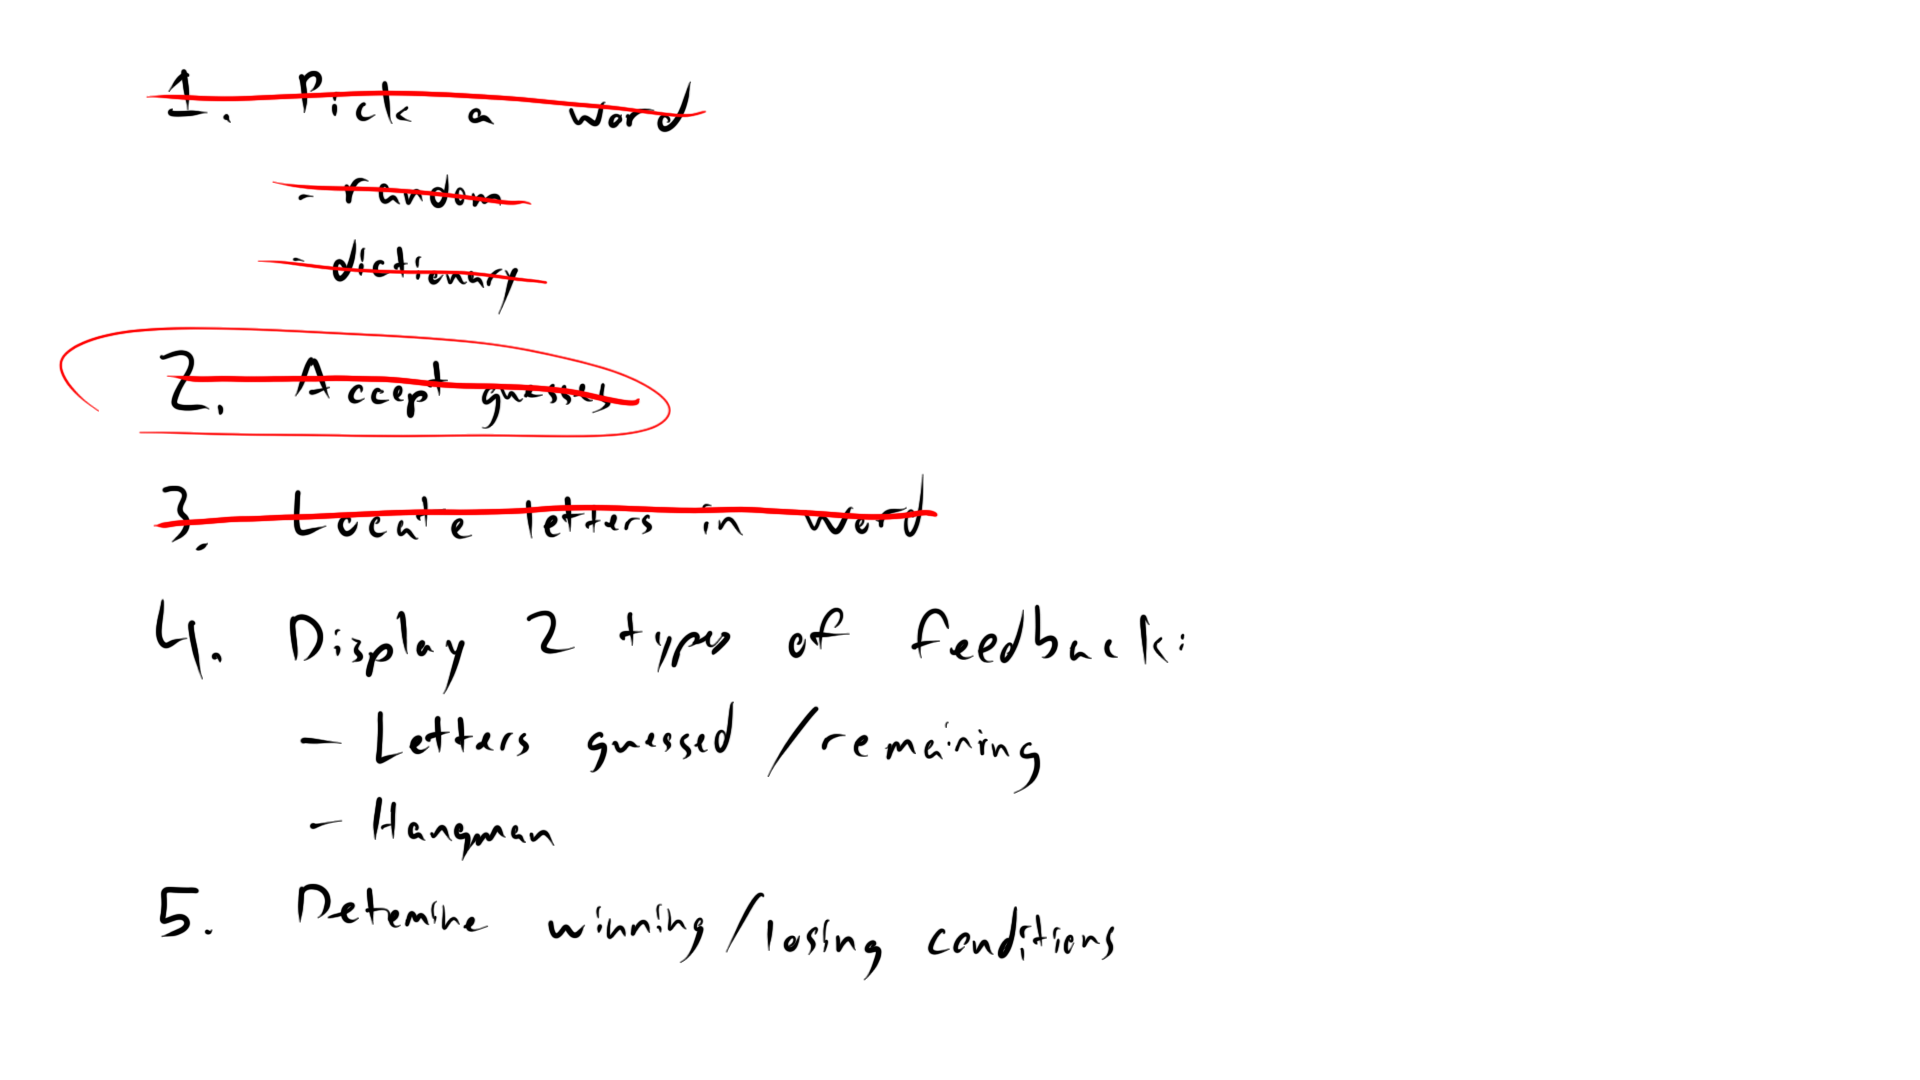 1. Pick a word
- random
- dictionary
2. Accept guesses
3. Locate letters in word
4. Display 2 types of feedback:
- Letters guessed / remaining
- Hangman
5. Detemine winning / losing conditions